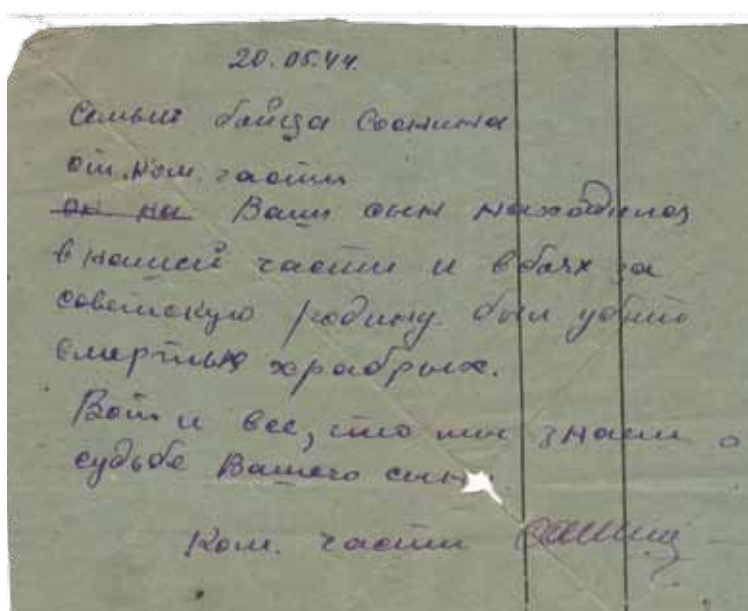 20.05.44.
Семьи бойца Соснина
от. Ком. части
он на Ваш сын находился
в нашей части и в боях за
советскую родину был убит
смертью храбрых.
Вот и все, что мы знаем о
судьбе Вашего сына.
Ком. части